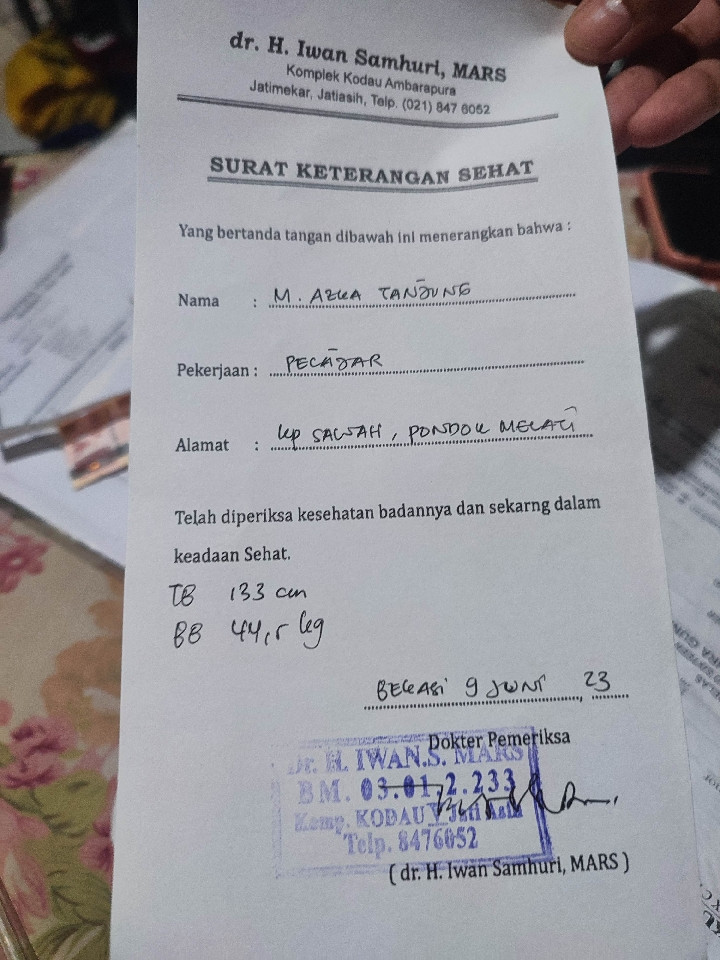 dr. H. Iwan Samhuri, MARS
Komplek Kodau Ambarapura
Jatimekar, Jatiasih, Telp. (021) 847 6052
SURAT KETERANGAN SEHAT
Yang bertanda tangan dibawah ini menerangkan bahwa :
Nama : M. AZKA TANJUNG
Pekerjaan : PELAJAR
Alamat : Kp SAWAH, PONDOK MELATI
Telah diperiksa kesehatan badannya dan sekarng dalam
keadaan Sehat.
TB 133 cm
BB 44,5 kg
BEKASI 9 JUNI , 23
Dokter Pemeriksa
Dr. H. IWAN.S. MARS
BM. 03.01.2.233
Komp. KODAU V Jati Asih
Telp. 8476052
( dr. H. Iwan Samhuri, MARS )